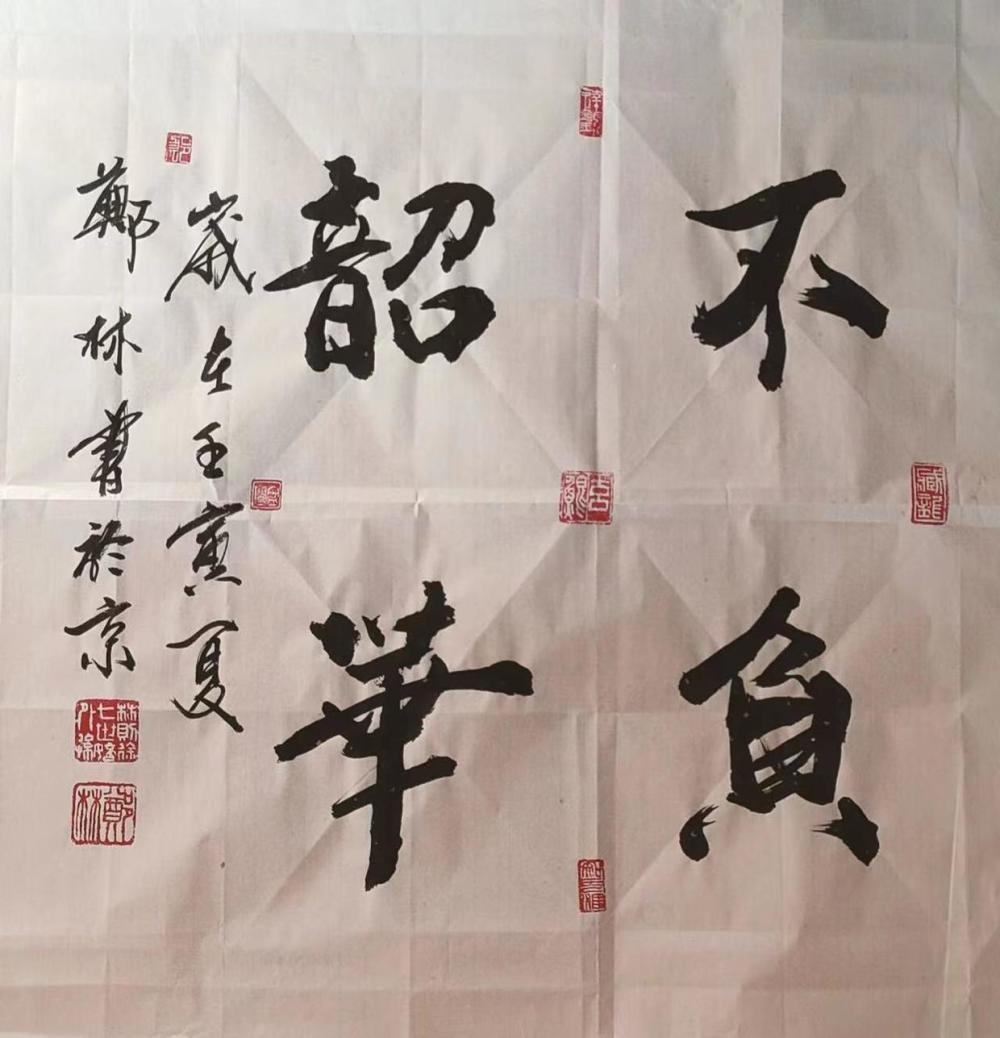 不负
韶華
歲在壬寅夏
鄭林書於京
鄭林